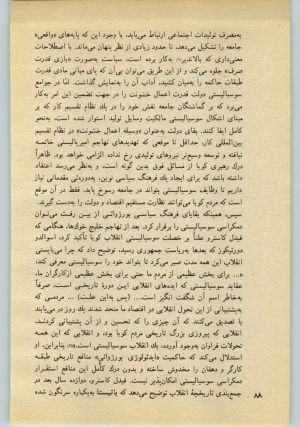 به‌مصرف تولیدات اجتماعی ارتباط می‌یابد، با وجود این که پایه‌های «واقعی»
جامعه را تشکیل می‌دهد، تا حدود زیادی از نظر پنهان می‌ماند. با اصطلاحات
معنی‌داری که بالاندیر به‌کار برده است، سیاست به‌صورت «بازی قدرت
صرف» جلوه می‌کند و از این طریق می‌توان بی‌آن که پای مبانی مادی قدرت
طبقات حاکمه را به‌میان کشید، آداب آن را به‌نمایش گذاشت. امّا در جوامع
سوسیالیستی دولت قدرت اعمال خشونت را در جهت تضمین این امر به‌کار
می‌برد که بر گماشتگان جامعه نقش خود را در یك نظام تقسیم کار که بر
مبنای اشکال سوسیالیستی مالکیت وسایل تولید استوار شده است، به‌نحو
کامل ایفا کنند. بقای دولت به‌عنوان «وسیله اعمال خشونت» در نظام تقسیم
بین‌المللی کار، حداقل تا موقعی که تهدیدهای تهاجم امپریالیستی خاتمه
نیافته و توسعه وسیع‌تر نیروهای تولیدی رخ نداده الزامی خواهد بود. ظاهراً
درك رهبری کوبا از مسائل فوق بدین گونه است، و به‌نظر می‌رسد اعتقاد
داشته باشد که برای ایجاد یك فرهنگ سیاسی نوین، به‌دوره‌ئی مقدماتی نیاز
داریم تا وظایف سوسیالیستی بتواند در جامعه رسوخ یابد. فقط در آن موقع
است که مردم کوبا می‌توانند نظارت مستقیم اقتصاد و دولت را به‌دست گیرند.
سپس، همینکه بقایای فرهنگ سیاسی بورژوازی از بین رفت می‌توان
دمکراسی سوسیالیستی را برقرار کرد. بعد از تهاجم خلیج خوك‌ها، هنگامی که
فیدل کاسترو علناً بر خصلت سوسیالیستی انقلاب کوبا تأکید کرد، اسوالدو
دورتیکوز که بعدها به‌ریاست جمهوری رسید، توضیح داد که چرا می‌بایستی
انقلاب این همه مدت صبر می‌کرد تا بتواند خود را سوسیالیستی معرفی کند:
«... برای بخش عظیمی از مردم ما حتی برای بخش عظیمی ازکارگران ما،
عقاید سوسیالیستی که ایده‌های انقلابی ایـن دورهٔ تاریخـی اسـت، صرفاً
به‌خاطر اسم آن شگفت انگیز است.... (پس به‌این علت) ... مردمـی که
به‌پشتیبانی از این تحول انقلابی در اقتصاد ما متحد شدند یك روز در می‌یابند
یا تصدیق می‌کنند که آن چیزی را که تحسین و از آن پشتیبانی کردند،
انقلابی که پیروزی بزرگ تاریخی مردم کوبا بود، و انقلابی که این همه
تحولات فراوان به‌وجود آورده، یك انقلاب سوسیالیستی است.» بنابراین، او
استدلال می‌کند که حاکمیت «ایدئولوژی بورژوائی» منافع تاریخی طبقـه
کارگر و دهقان را مخدوش ساخته و بدون درك کامل این منافع استقـرار
دمکراسی سوسیالیستی امکان‌پذیر نیست. فیدل کاسترو، دوازده سال بعد در
جمع‌بندی تاریخچهٔ انقلاب توضیح می‌دهد که باتیستا به‌یکباره سرنگون شده
۸۸